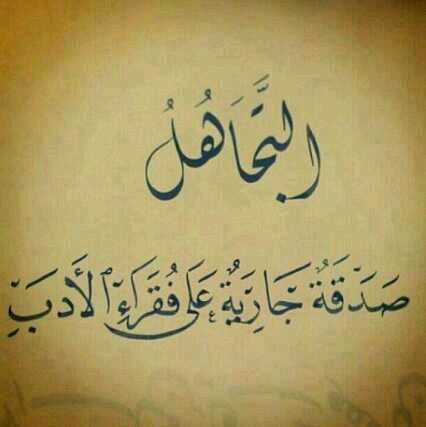 التَّجَاهُلُ
صَدَقَةٌ جَارِيَةٌ عَلَى فُقَرَاءِ الأَدَبِ